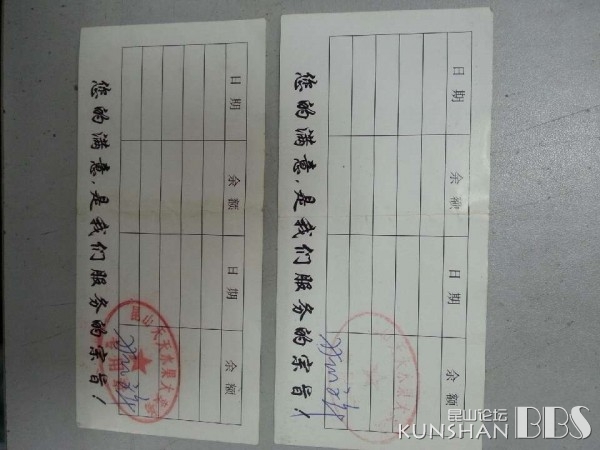 日期 余额 日期 余额
您的满意，是我们服务的宗旨！
日期 余额 日期 余额
您的满意，是我们服务的宗旨！
昆山论坛
KUNSHAN BBS